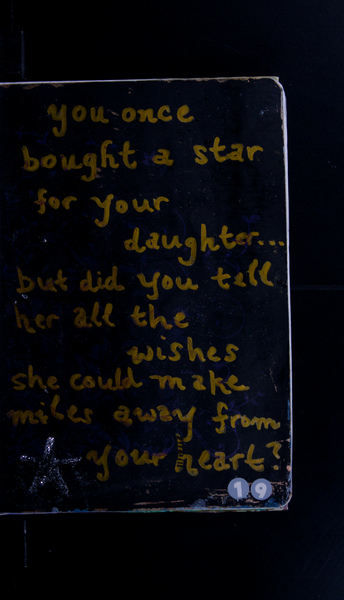 you once
bought a star
for your
daughter...
but did you tell
her all the
wishes
she could make
miles away from
your heart?
19